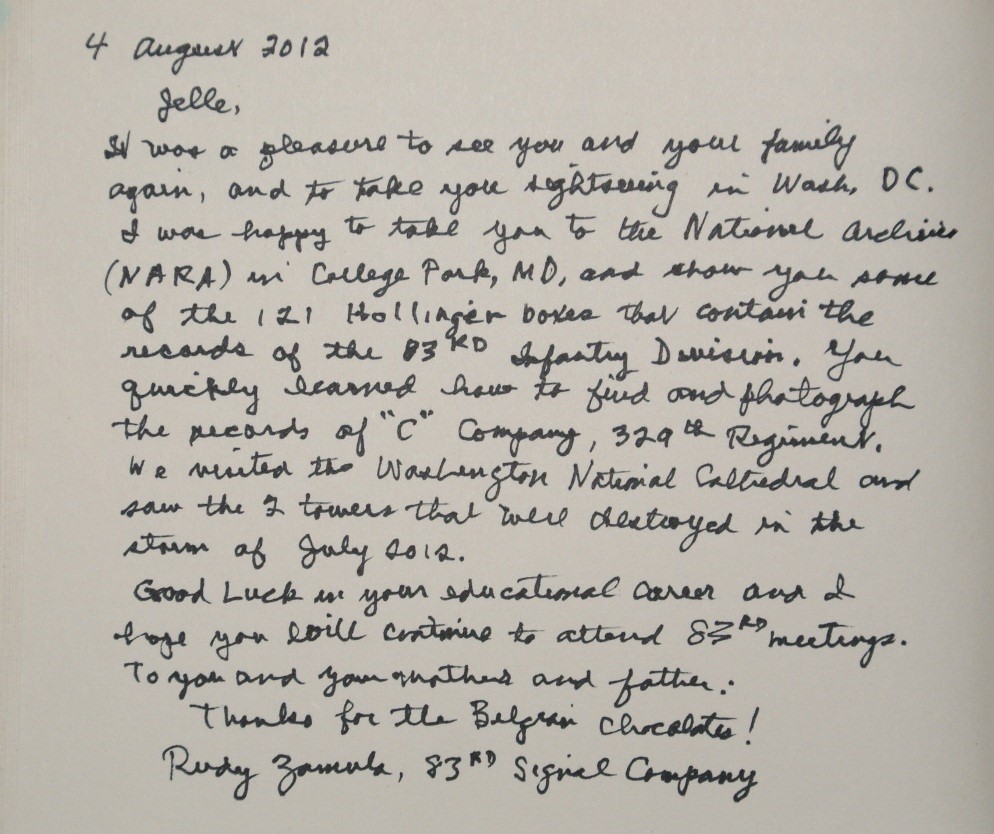 4 August 2012
Jelle,
It was a pleasure to see you and your family
again, and to take you sightseeing in Wash, DC.
I was happy to take you to the National Archives
(NARA) in College Park, MD, and show you some
of the 121 Hollinger boxes that contain the
records of the 83RD Infantry Division. You
quickly learned how to find and photograph
the records of "C" Company, 329th Regiment.
We visited the Washington National Cathedral and
saw the 2 towers that were destroyed in the
storm of July 2012.
Good Luck in your educational career and I
hope you will continue to attend 83RD meetings.
To you and your mother and father:
Thanks for the Belgian chocolates!
Rudy Zamula, 83RD Signal Company